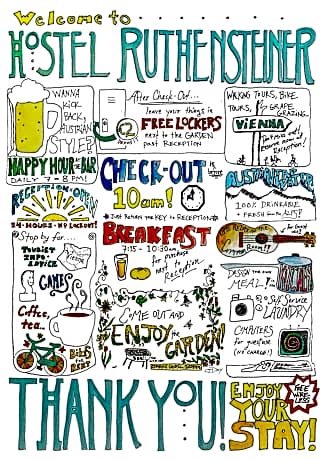 Welcome to
HOSTEL RUTHENSTEINER
WANNA
KICK
BACK,
AUSTRIAN
STYLE?
HAPPY HOUR @ the BAR
DAILY 7-8 PM!
After Check-Out...
leave your things in
FREE LOCKERS
next to the GARDEN
past RECEPTION
WALKING TOURS, BIKE
TOURS, GRAPE
GRAZING...
VIENNA
RECEPTION OPEN
24-HOURS - NO LOCKOUT!
Stop by for....
TOURIST
INFO &
ADVICE
VIENNA
GAMES
Coffee,
tea...
BIKES
for
RENT
CHECK-OUT
is before
10am!
JUST RETURN the KEY to RECEPTION
BREAKFAST
7:15 - 10:30am
for purchase
next to
Reception
COME OUT AND
ENJOY the
GARDEN!
100% DRINKABLE
+ FRESH from the ALPS!
DESIGN YOUR OWN
MEAL!
Self Service
LAUNDRY
COMPUTERS
for guest use
(NO CHARGE!)
THANK YOU!
ENJOY
YOUR
STAY!
FREE
WIRE
LESS